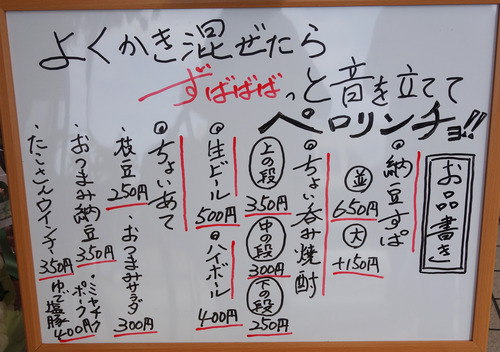 よくかき混ぜたら
ずばばばっと音を立てて
ペロリンチョ!!
お品書き
納豆すぱ
並 650円
大 +150円
ちょい呑み焼酎
上の段 350円
中の段 300円
下の段 250円
生ビール 500円
ハイボール 400円
ちょいあて
・枝豆 250円
・おつまみサラダ 300円
・おつまみ納豆 350円
・ミャチク
ポーク
ゆで塩豚 400円
・たこさんウインナー 350円